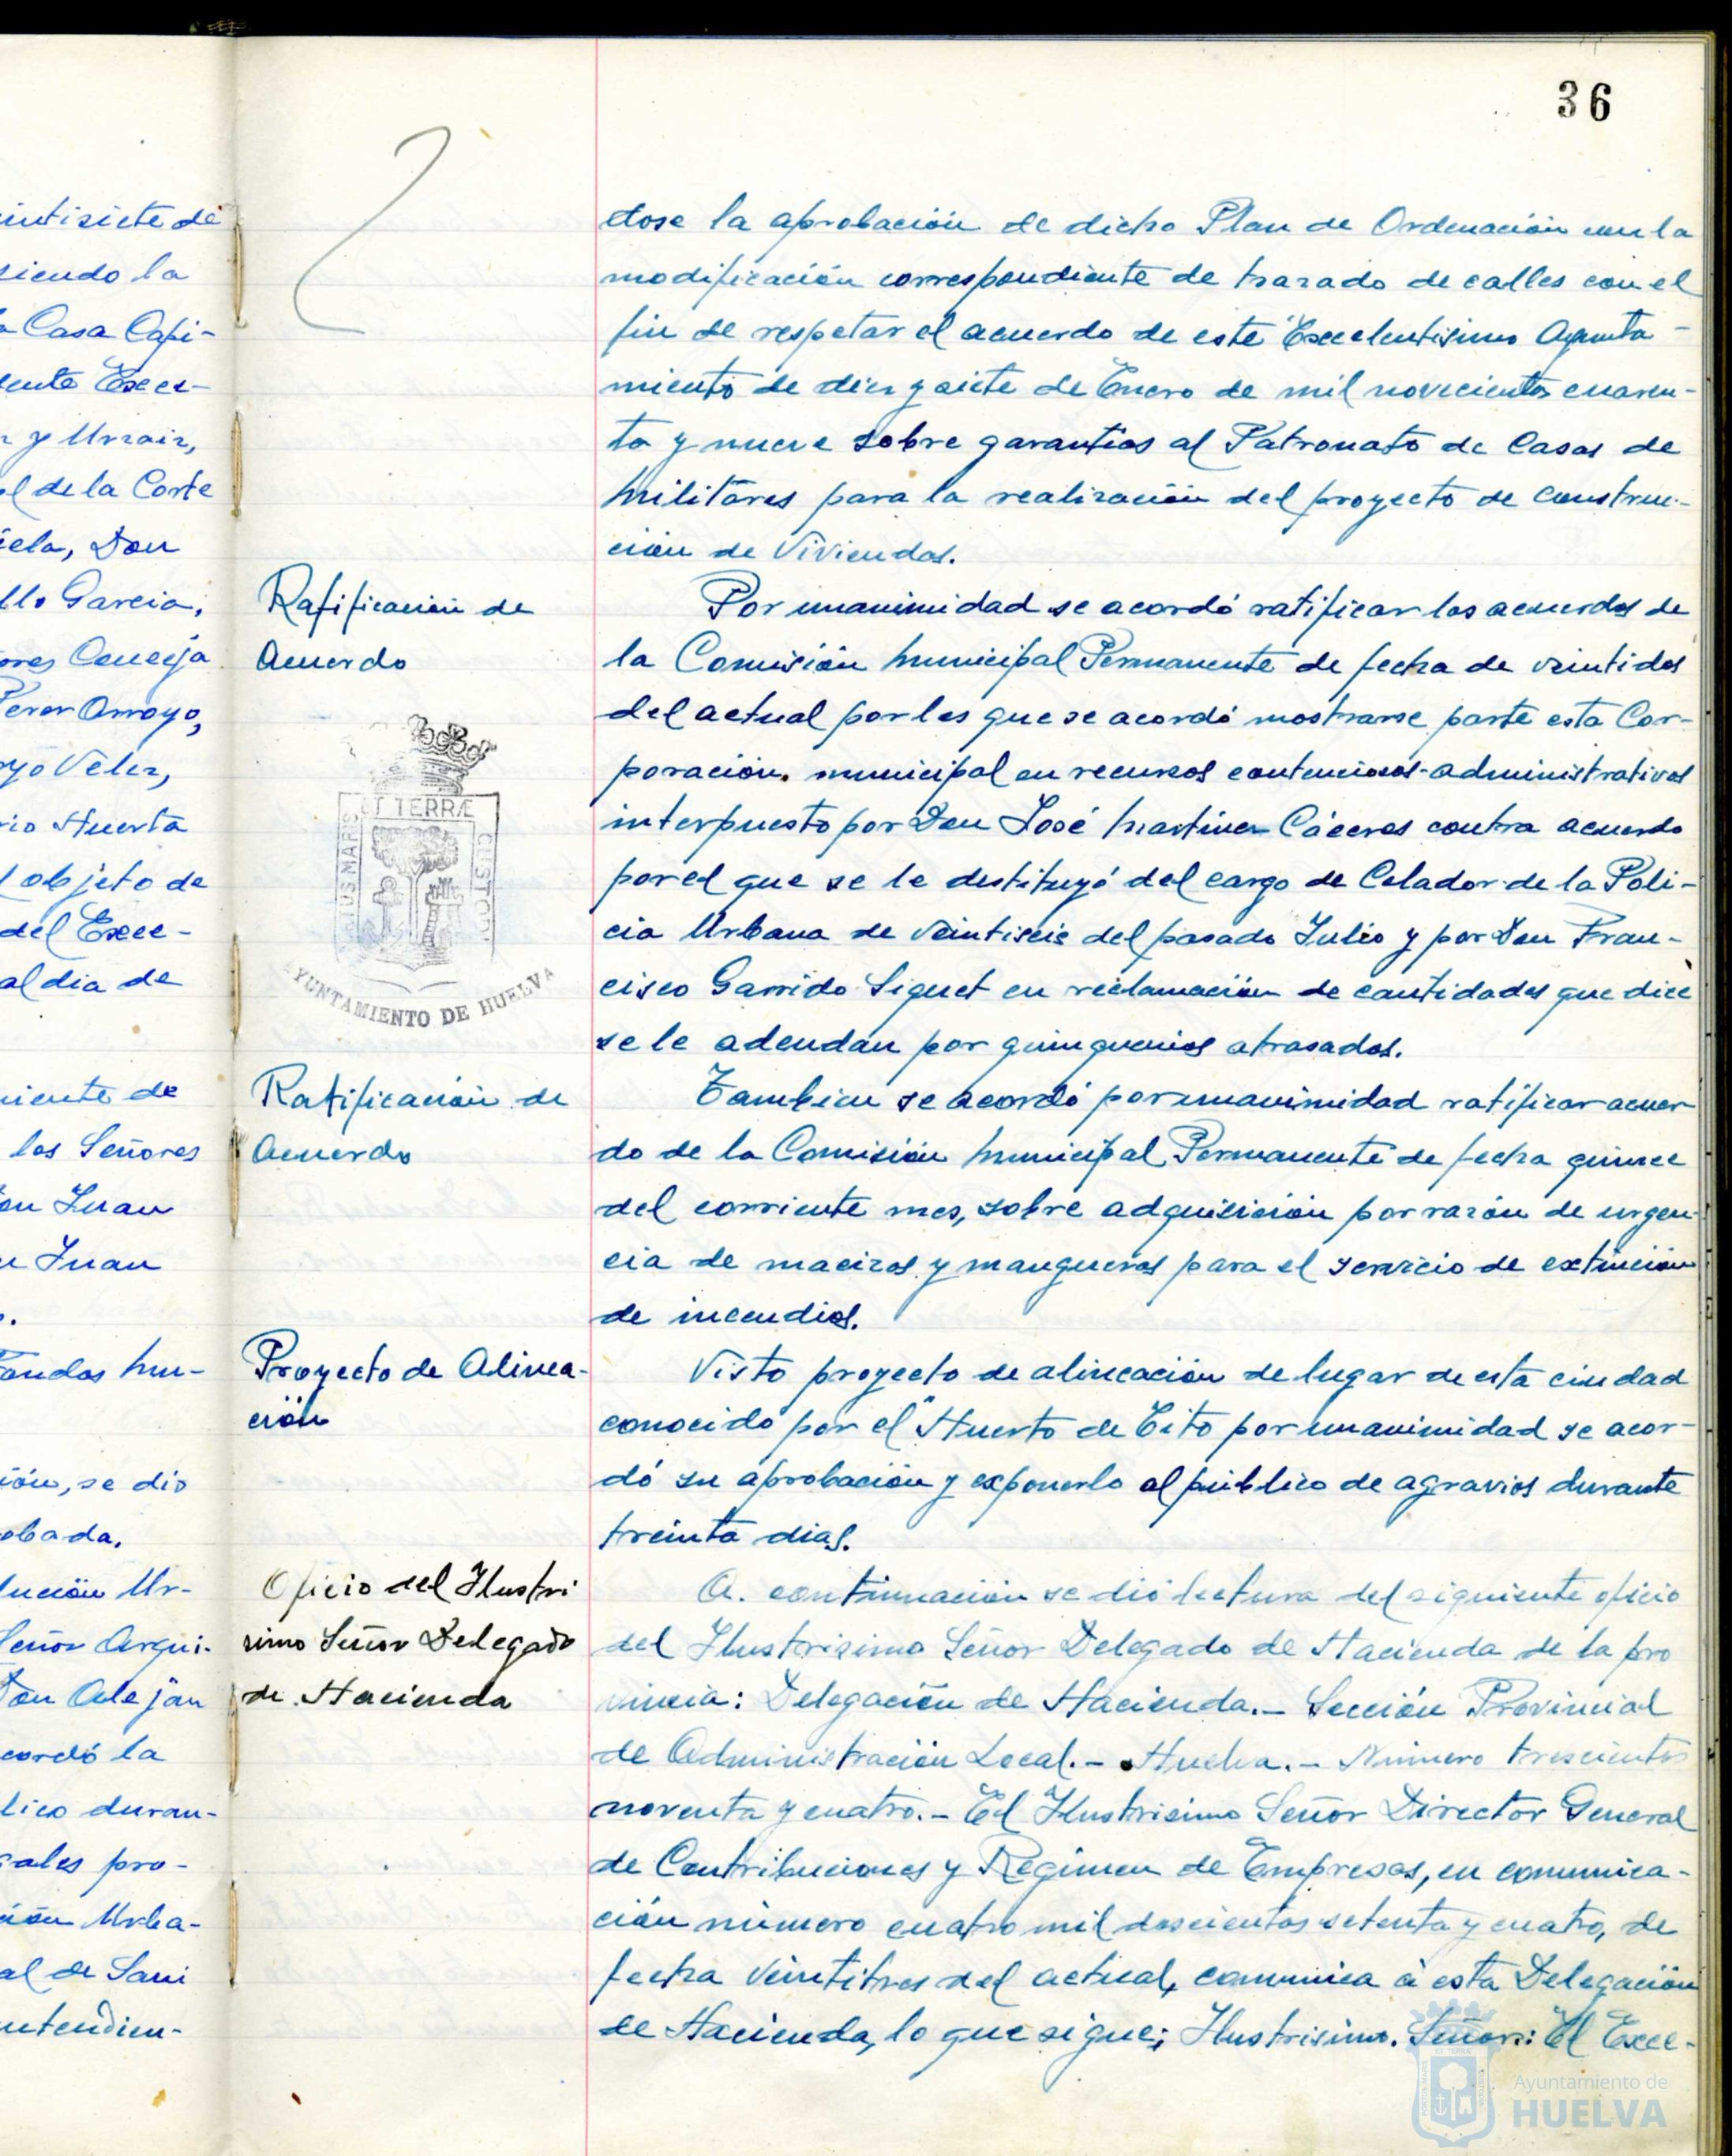 36
intisiete de
siendo la
a Casa Capi-
ente Exce-
r y Urzaiz,
l de la Corte
iela, Don
llo Garcia,
ores Conceja
Perez Arroyo,
yo Vélez,
rio Huerta
l objeto de
del Exce-
al dia de
niente de
los Señores
on Juan
n Juan
andos Mu-
ión, se dio
obada.
lución Ur-
Señor Arqui-
Don Alejan
cordó la
lico duran-
gales pro-
ción Urba-
al de Sani
ntendien-
dose la aprobación de dicho Plan de Ordenación con la
modificación correspondiente de trazado de calles con el
fin de respetar el acuerdo de este Excelentisimo Ayunta-
miento de diez y siete de Enero de mil novecientos cuaren-
ta y nueve sobre garantias al Patronato de Casas de
Militares para la realización del proyecto de construc-
ción de Viviendas.
Ratificación de
Acuerdo
Por unanimidad se acordó ratificar los acuerdos de
la Comisión Municipal Permanente de fecha de veintidos
del actual por los que se acordó mostrarse parte esta Cor-
poración municipal en recursos contenciosos-administrativos
interpuesto por Don José Martinez Cáceres contra acuerdo
por el que se le destituyó del cargo de Celador de la Poli-
cia Urbana de veintiseis del pasado Julio y por Don Fran-
cisco Garrido Siguet en reclamación de cantidades que dice
se le adeudan por quinquenios atrasados.
ET TERRÆ
PORTUS MARIS
CUSTODIA
AYUNTAMIENTO DE HUELVA
Ratificación de
Acuerdo
Tambien se acordó por unanimidad ratificar acuer
do de la Comisión Municipal Permanente de fecha quince
del corriente mes, sobre adquisición por razón de urgen-
cia de macizos y mangueras para el servicio de extinción
de incendios.
Proyecto de Alinea-
ción
Visto proyecto de alineación de lugar de esta ciudad
conocido por el "Huerto de Tito por unanimidad se acor-
dó su aprobación y exponerlo al público de agravios durante
treinta dias.
Oficio del Ilustri
simo Señor Delegado
de Hacienda
A. continuación se dió lectura del siguiente oficio
del Ilustrisimo Señor Delegado de Hacienda de la pro
vincia: Delegación de Hacienda.- Sección Provincial
de Administración Local.- Huelva.- Número trescientos
noventa y cuatro.- El Ilustrisimo Señor Director General
de Contribuciones y Régimen de Empresas, en comunica-
ción número cuatro mil doscientos setenta y cuatro, de
fecha veintitres del actual, comunica a esta Delegación
de Hacienda, lo que sigue; Ilustrisimo. Señor: El Exce-
Ayuntamiento de
HUELVA